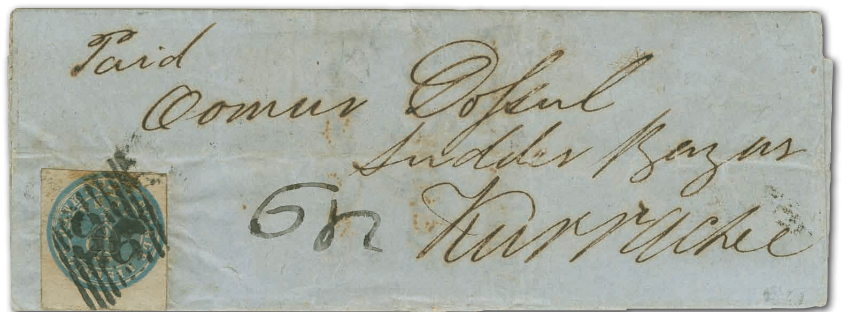 Paid
Oomur Dossul
Sudder Bazar
Kurrachee